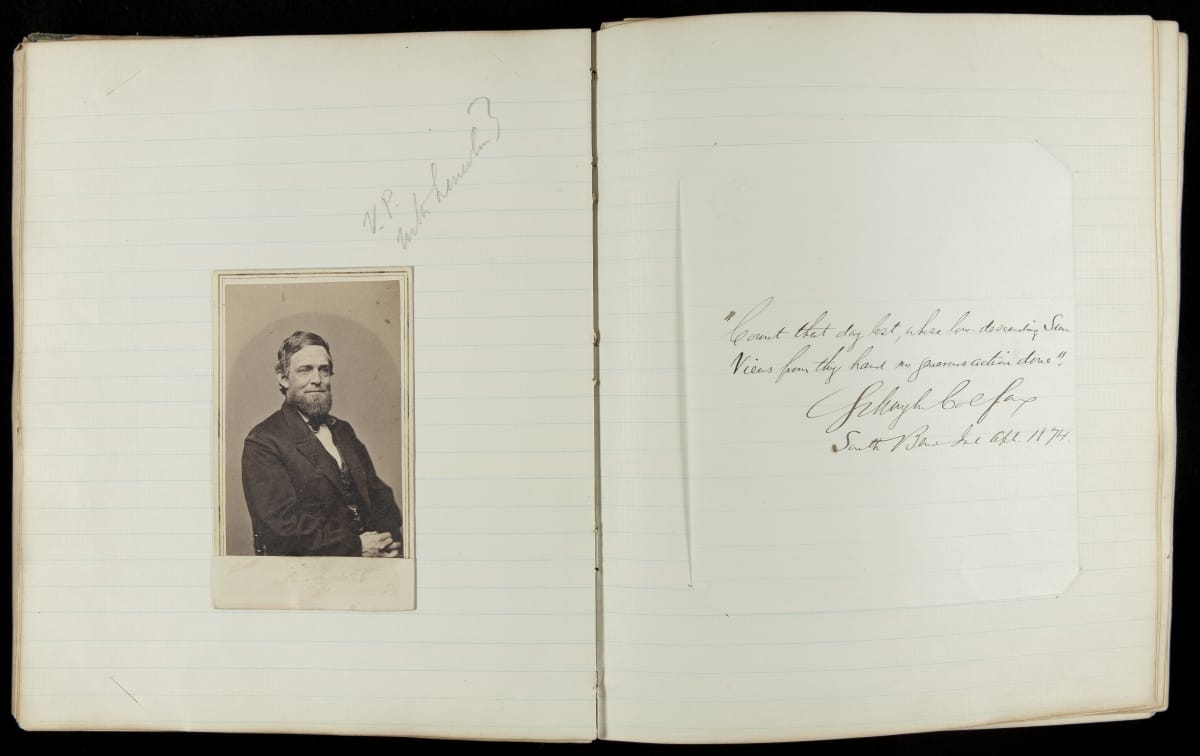 V. P.
with Lincoln?
"Count that day lost, whose low-descending Sun
Views from thy hand no generous action done".
Schuyler Colfax
South Bend Ind Apl. 1874.